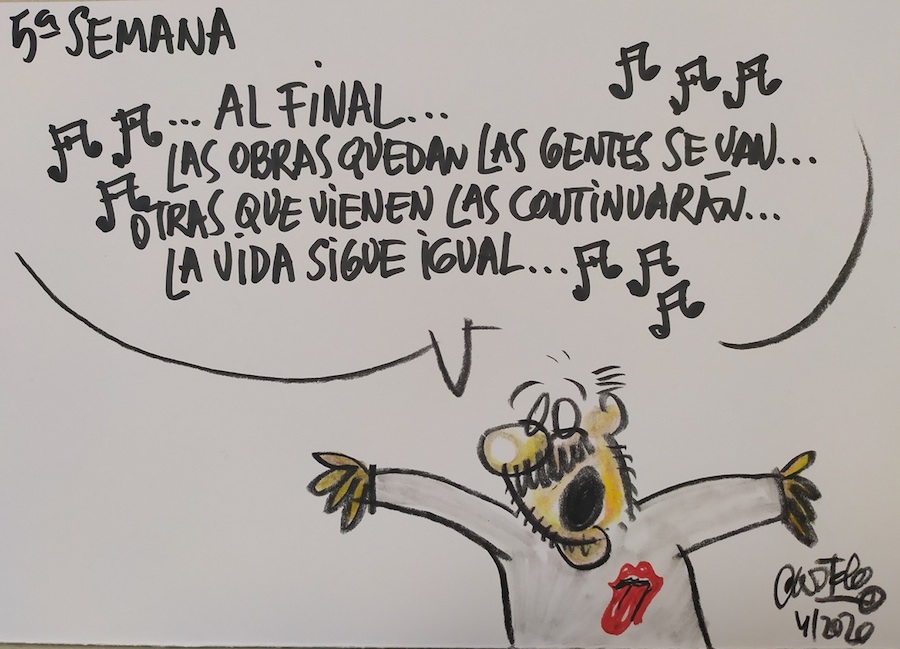 5ª SEMANA
... AL FINAL...
LAS OBRAS QUEDAN LAS GENTES SE VAN...
OTRAS QUE VIENEN LAS CONTINUARÁN...
LA VIDA SIGUE IGUAL...
4/2020